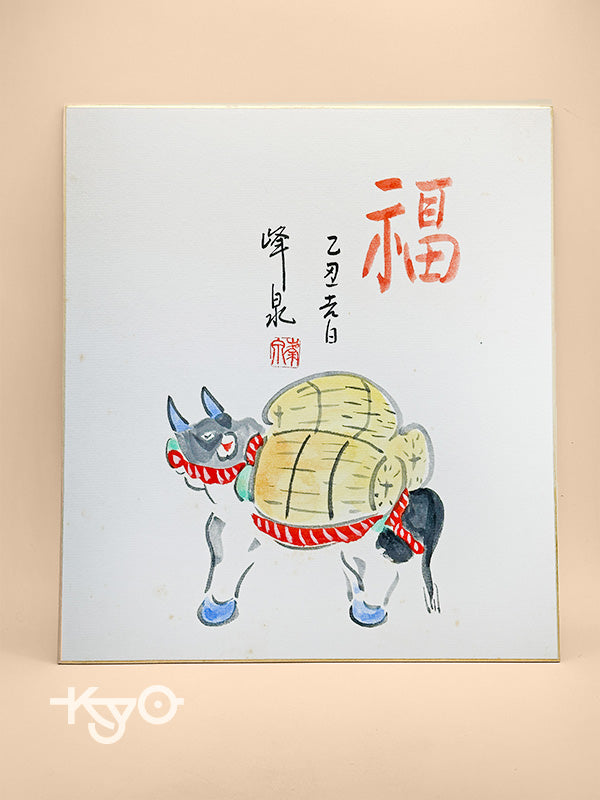 福
乙丑吉日
峰泉
KYO